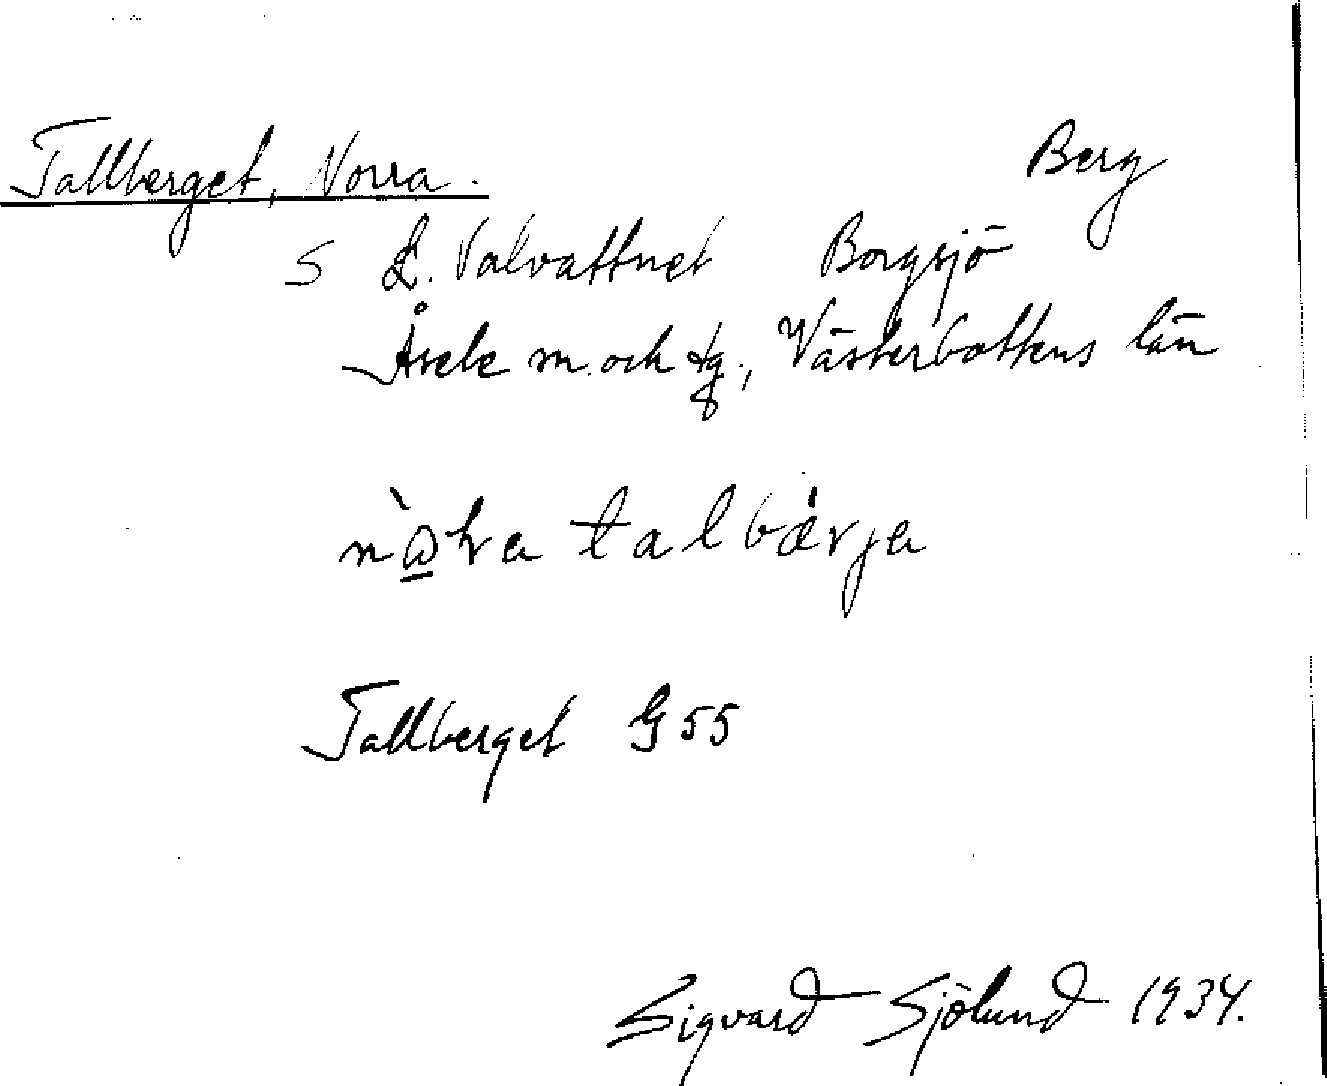 Tallberget, Norra. Berg
S L. Valvattnet Borgsjö
Åsele m. och tg., Västerbottens län
nò̱ra talbǽrjа
Tallberget G 55
Sigvard Sjölund 1934.